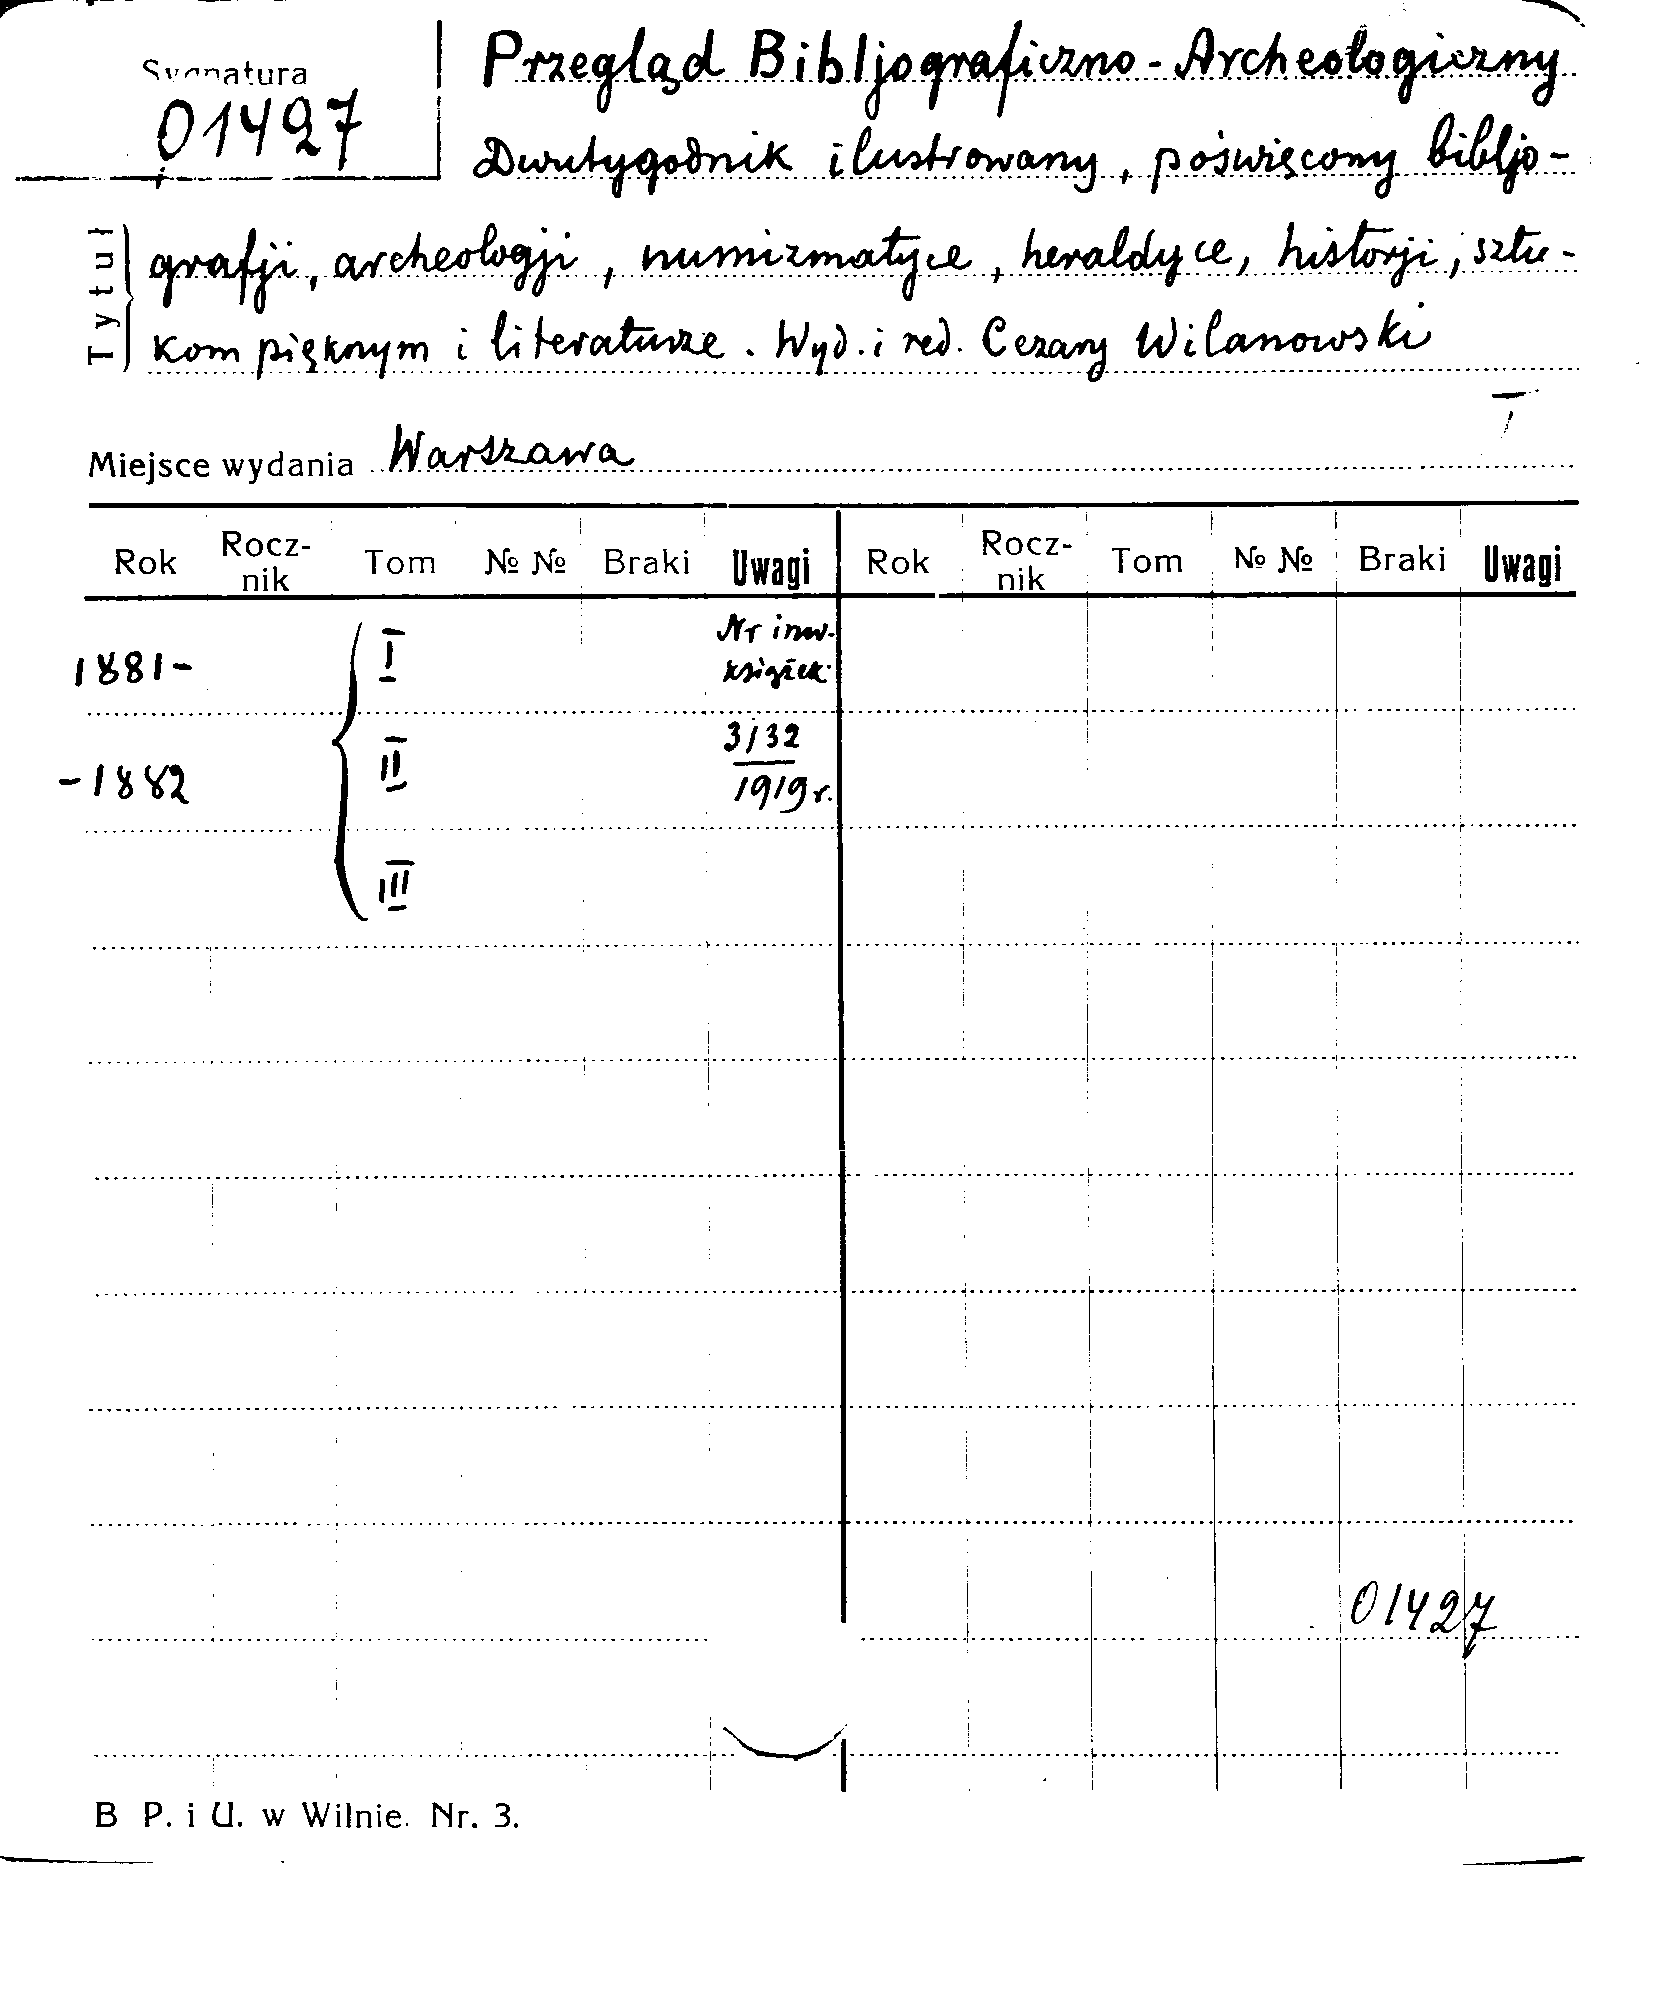 Sygnatura
01427
Przegląd Bibljograficzno-Archeologiczny
Dwutygodnik ilustrowany, poświęcony bibljo-
Tytuł
grafji, archeologji, numizmatyce, heraldyce, historji, sztu-
kom pięknym i literaturze. Wyd. i red. Cezary Wilanowski
I
Miejsce wydania Warszawa
Rok Rocz-nik Tom № № Braki Uwagi Rok Rocz-nik Tom № № Braki Uwagi
1881- I Nr inw. książek
-1882 II 3132/1919 r.
III
01427
B P. i U. w Wilnie. Nr. 3.